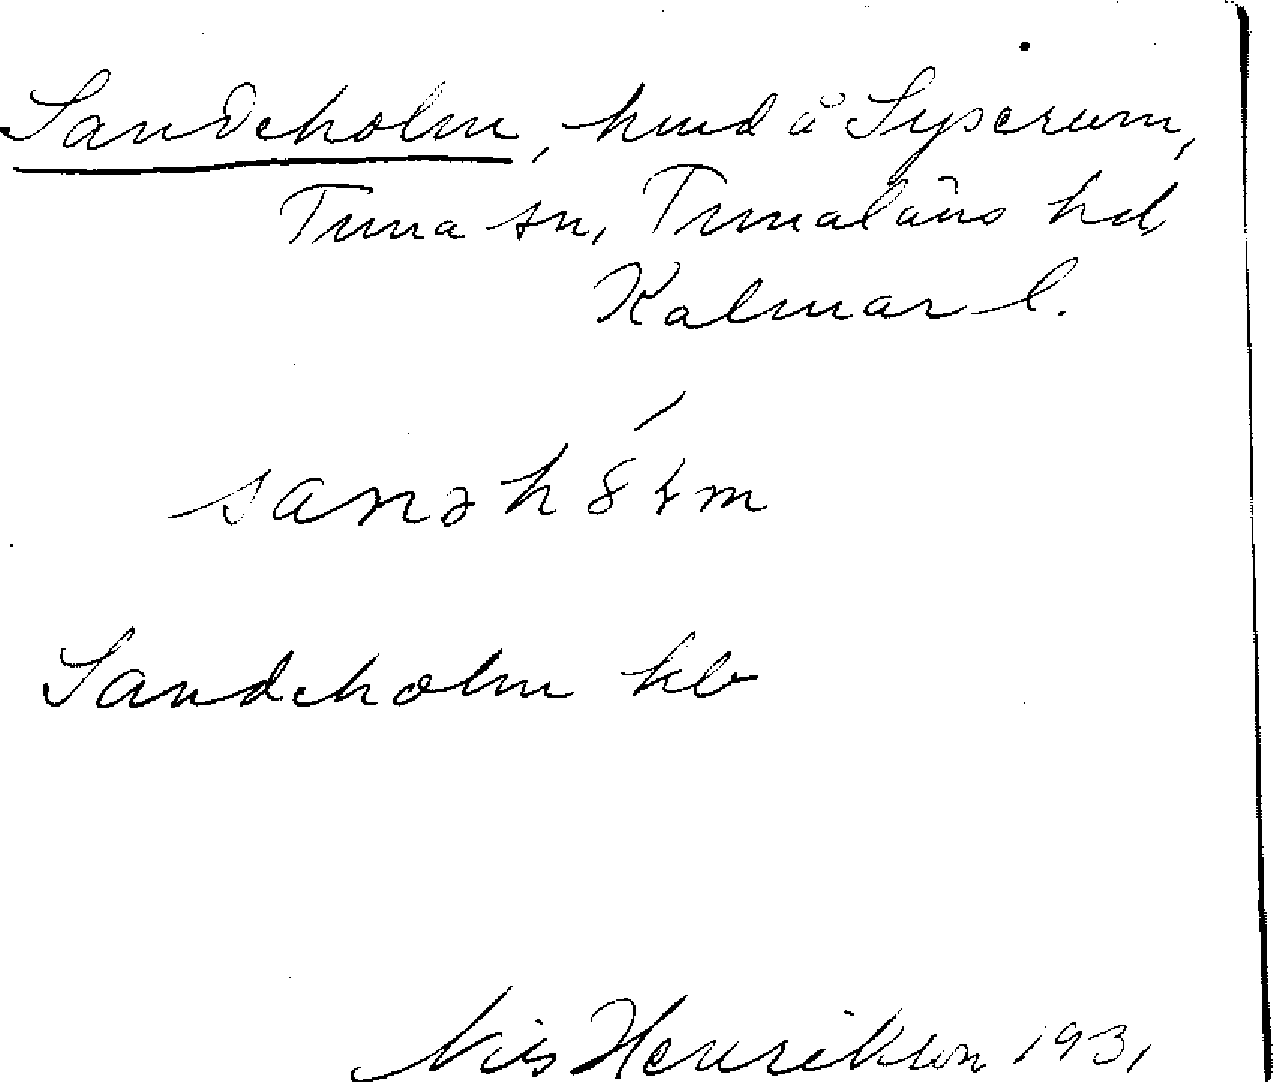 Sandeholm, hmd å Syserum,
Tuna sn, Tunaläns hd
Kalmar l.
Sandeholm kb
Nils Henrikson 1931